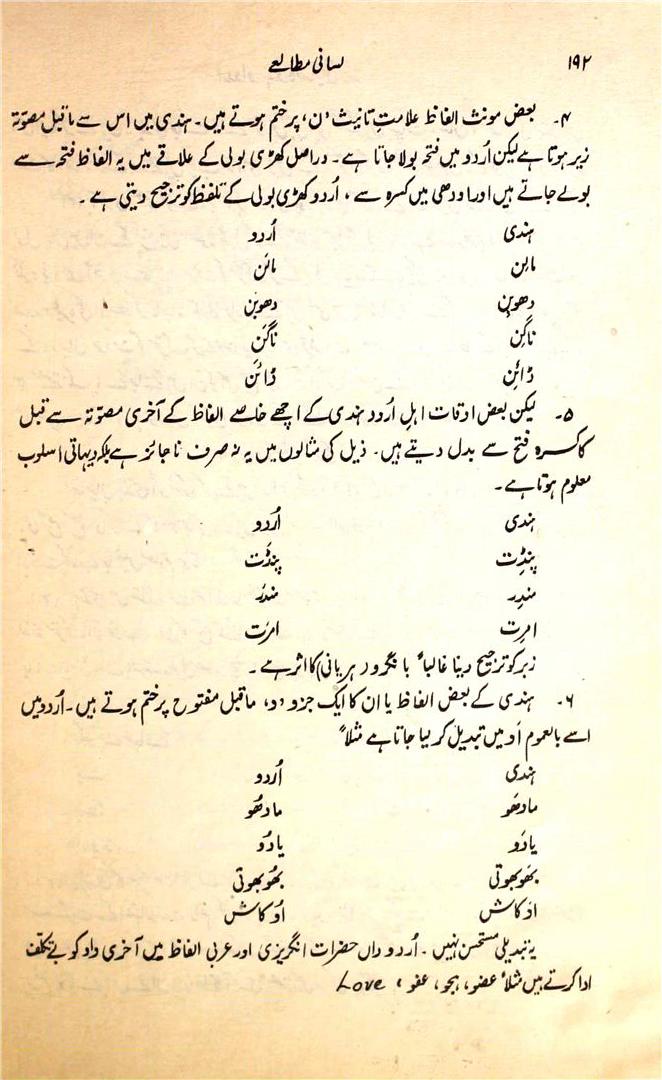 ۱۹۲ لسانی مطالعے
۴۔ بعض مونث الفاظ علامتِ تانیث ’ن‘ پر ختم ہوتے ہیں۔ ہندی میں اس سے ماقبل مصوّتہ
زیر ہوتا ہے لیکن اُردو میں فتحہ بولا جاتا ہے۔ دراصل کھڑی بولی کے علاقے میں یہ الفاظ فتحہ سے
بولے جاتے ہیں اور اودھی میں کسرہ سے، اُردو کھڑی بولی کے تلفظ کو ترجیح دیتی ہے۔
ہندی اُردو
مالِن مالَن
دھوبِن دھوبَن
ناگِن ناگَن
ڈائِن ڈائَن
۵۔ لیکن بعض اوقات اہلِ اُردو ہندی کے اچھے خاصے الفاظ کے آخری مصوّتہ سے قبل
کا کسرہ فتح سے بدل دیتے ہیں۔ ذیل کی مثالوں میں یہ نہ صرف ناجائز ہے بلکہ دیہاتی اسلوب
معلوم ہوتا ہے۔
ہندی اُردو
پنڈِت پنڈَت
مندِر مندَر
امرِت امرَت
زبر کو ترجیح دینا غالباً بانگرو (ہریانی) کا اثر ہے۔
۶۔ ہندی کے بعض الفاظ یا ان کا ایک جزو ’و‘ ماقبل مفتوح پر ختم ہوتے ہیں۔ اُردو میں
اسے بالعموم اُو میں تبدیل کر لیا جاتا ہے مثلاً
ہندی اُردو
مادھَو مادھُو
یادَو یادُو
بھَوبھوتی بھُوبھوتی
اَوکاش اُوکاش
یہ تبدیلی مستحسن نہیں۔ اردو داں حضرات انگریزی اور عربی الفاظ میں آخری واو کو بے تکلف
ادا کرتے ہیں مثلاً عضو، ہجو، عفو، Love